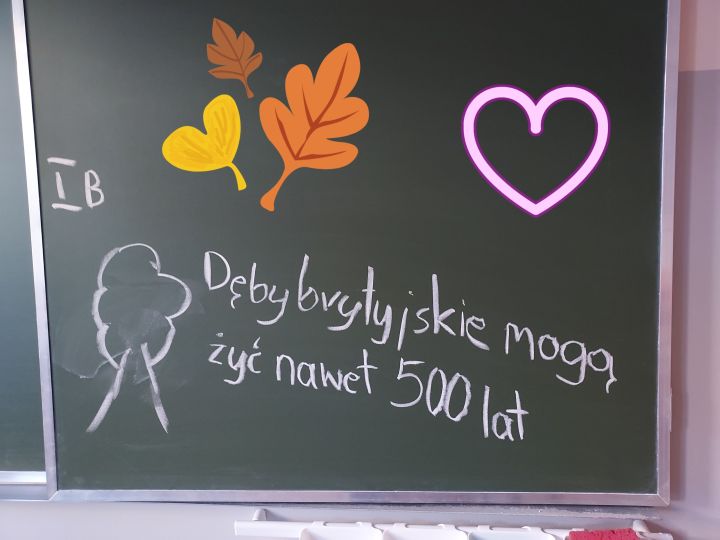 I B
Dęby brytyjskie mogą
żyć nawet 500 lat